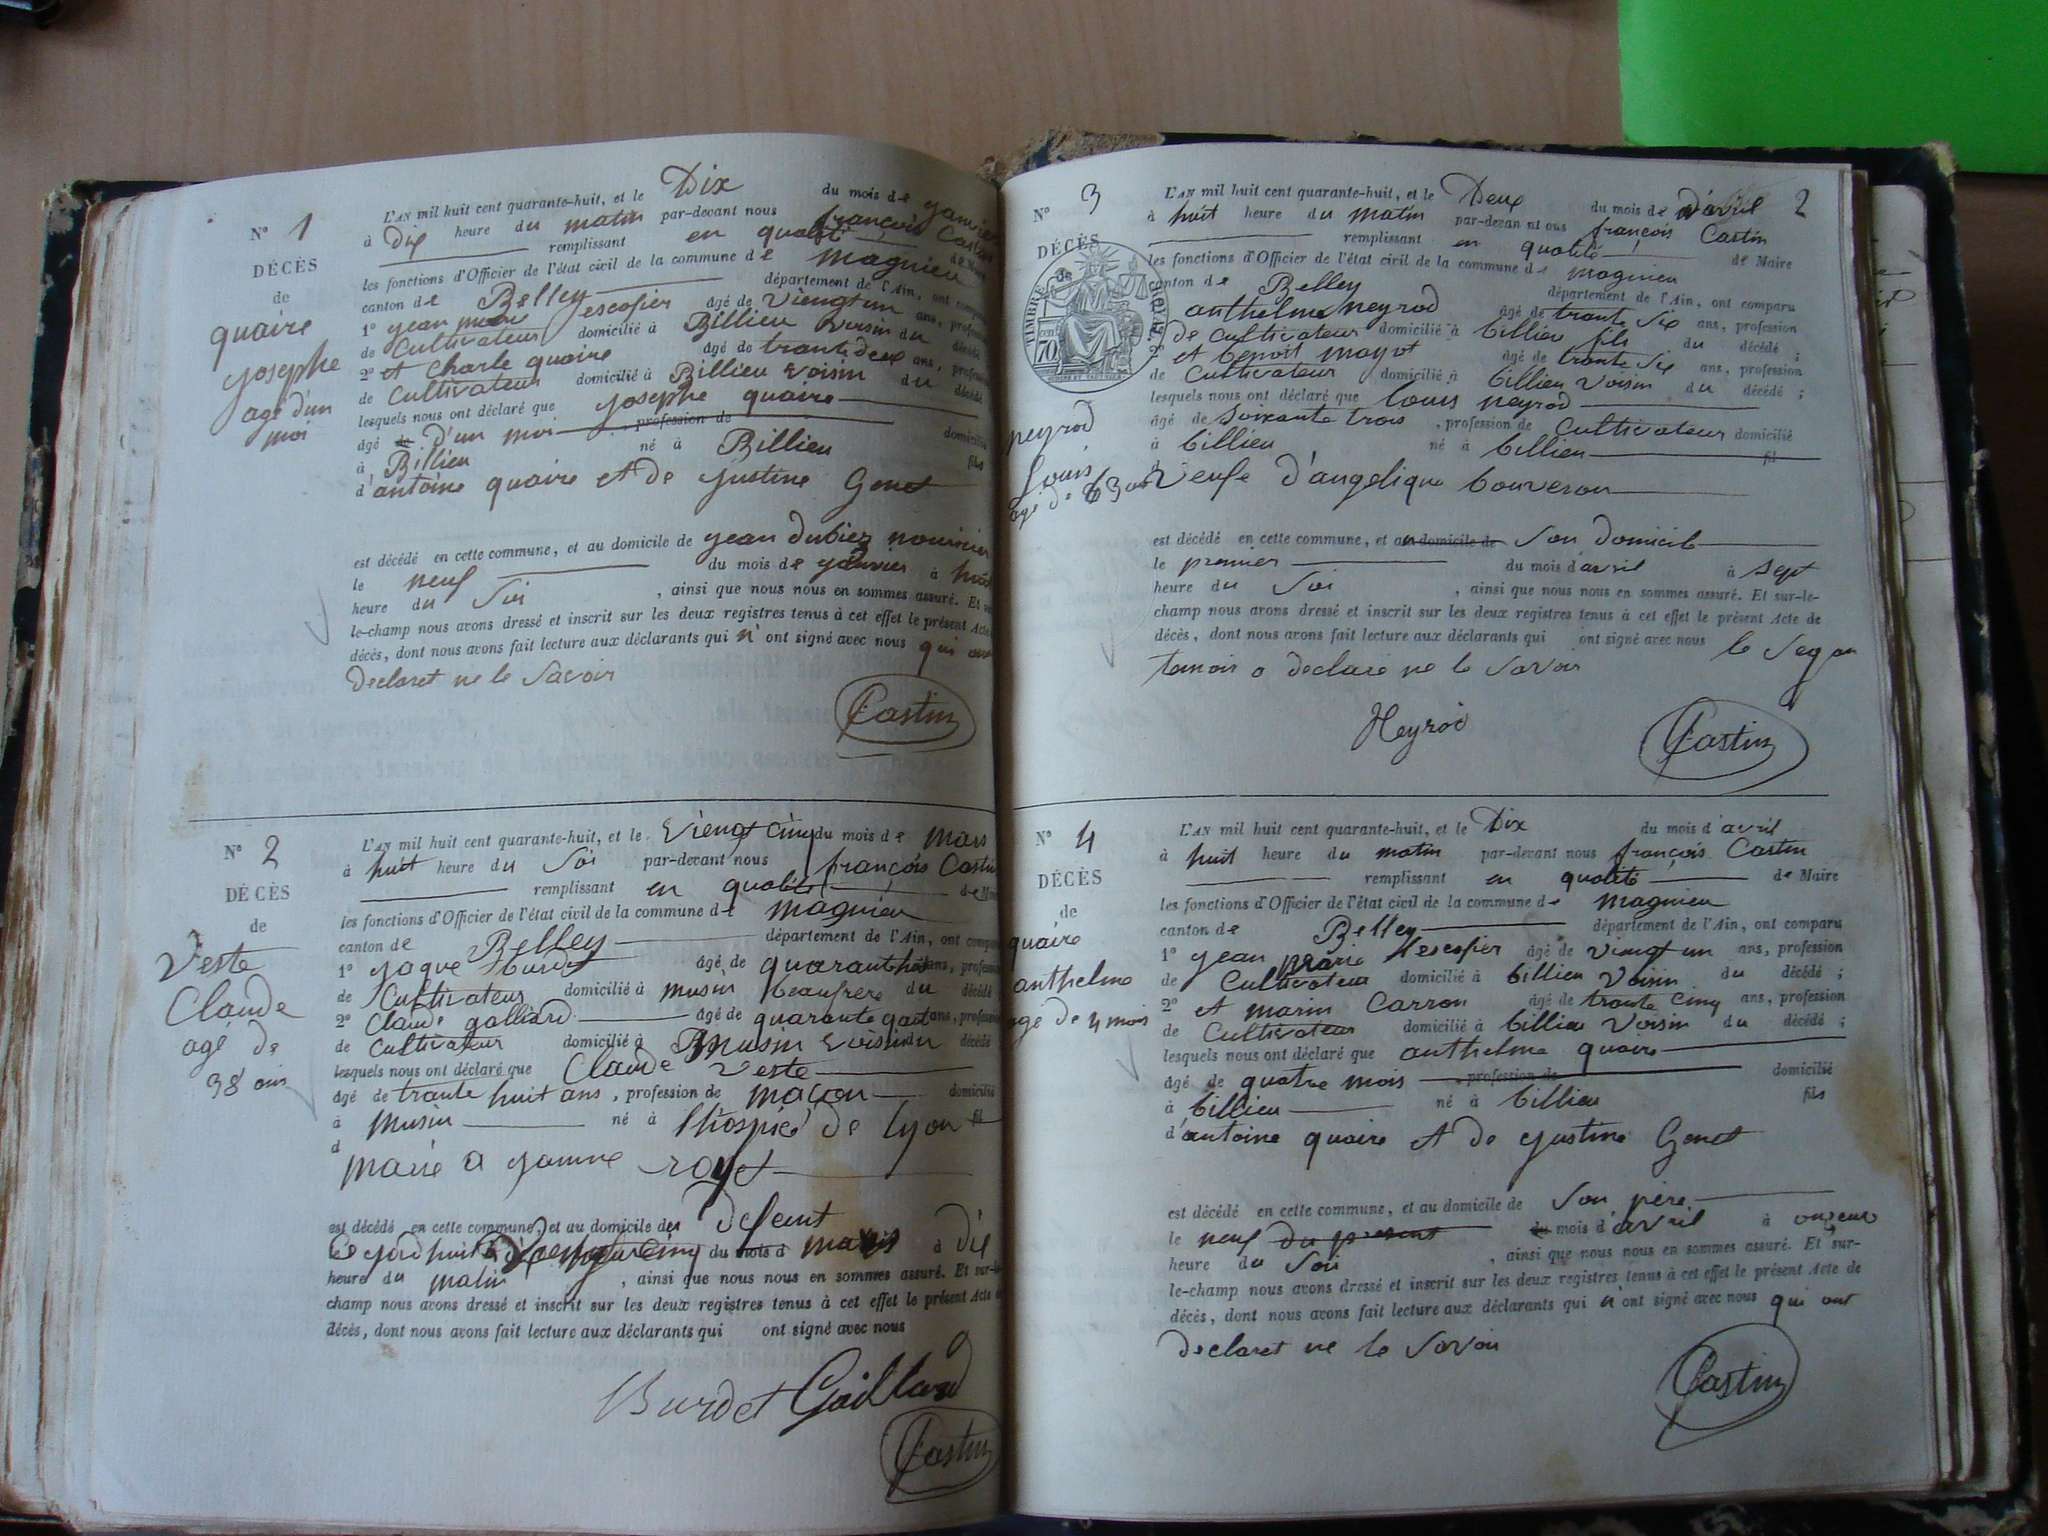 N° 1
DÉCÈS
de
quaire
yosephe
agé d'un
moi
L'AN mil huit cent quarante-huit, et le Dix du mois de
à dix heure du matin par-devant nous françois
remplissant en qualité de Maire
les fonctions d'Officier de l'état civil de la commune de magnieu
canton de Belley département de l'Ain, ont
1° yean marie lescofier âgé de viengt un ans,
de Cultivateur domicilié à Billieu voisin du décédé
2° et Charle quaire âgé de trante deux ans,
de Cultivateur domicilié à Billieu voisin du décédé
lesquels nous ont déclaré que yosephe quaire
âgé de d'un moi , profession de domicilié
à Billieu né à Billieu fils
d'antoine quaire et de yustine Genet
est décédé en cette commune, et au domicile de yean dubiez
le neuf du mois de à
heure du soi , ainsi que nous nous en sommes assuré. Et
le-champ nous avons dressé et inscrit sur les deux registres tenus à cet effet le présent Acte
décès, dont nous avons fait lecture aux déclarants qui n' ont signé avec nous qui
declaret ne le savoir
Castin
N° 2
DÉCÈS
de
Veste
Claude
agé de
38 ans
L'AN mil huit cent quarante-huit, et le viengt cinq du mois de mars
à huit heure du soi par-devant nous françois Castin
remplissant en qualité de
les fonctions d'Officier de l'état civil de la commune de magnieu
canton de Belley département de l'Ain, ont
1° yaque burdet âgé de ans,
de Cultivateur domicilié à musin beaufrere du décédé
2° Claude galliard âgé de quarante ans,
de Cultivateur domicilié à musin décédé
lesquels nous ont déclaré que Claude Veste
âgé de trante huit ans , profession de maçon domicilié
à musin né à l'hospice de Lyon fil
d
marié a yanne royet
est décédé en cette commune, et au domicile du defeunt
du mois d mars à dix
heure du matin , ainsi que nous nous en sommes assuré. Et sur-le-
champ nous avons dressé et inscrit sur les deux registres tenus à cet effet le présent Acte
décès, dont nous avons fait lecture aux déclarants qui ont signé avec nous
Burdet Gaillard
Castin
2
N° 3
DÉCÈS
de
TIMBRE ROYAL
70
neyrod
Louis
agé de 63 ans
L'AN mil huit cent quarante-huit, et le Deux du mois de d'avril
à huit heure du matin par-devan nt ous françois Castin
remplissant en qualité de Maire
les fonctions d'Officier de l'état civil de la commune de magnieu
canton de Belley département de l'Ain, ont comparu
anthelme neyrod âgé de trante six ans, profession
de Cultivateur domicilié à billieu fils du décédé ;
2° et benoit mayot âgé de trante six ans, profession
de Cultivateur domicilié à billieu voisin du décédé ;
lesquels nous ont déclaré que louis neyrod
âgé de soixante trois , profession de Cultivateur domicilié
à billieu né à billieu fil
veufe d'angelique bouveron
est décédé en cette commune, et au domicile de son domicile
le premier du mois d'avril à sept
heure du soi , ainsi que nous nous en sommes assuré. Et sur-le-
champ nous avons dressé et inscrit sur les deux registres tenus à cet effet le présent Acte de
décès, dont nous avons fait lecture aux déclarants qui ont signé avec nous le segon
temoir a declaré ne le savoir
Neyrod
Castin
N° 4
DÉCÈS
de
quaire
anthelme
agé de 4 mois
L'AN mil huit cent quarante-huit, et le Dix du mois d'avril
à huit heure du matin par-devant nous françois Castin
remplissant en qualité de Maire
les fonctions d'Officier de l'état civil de la commune de magnieu
canton de Belley département de l'Ain, ont comparu
1° yean marie lescofier âgé de viengt un ans, profession
de Cultivateur domicilié à billieu voisin du décédé ;
2° et marin Carron âgé de trante cinq ans, profession
de Cultivateur domicilié à billieu voisin du décédé ;
lesquels nous ont déclaré que anthelme quaire
âgé de quatre mois , profession de domicilié
à billieu né à billieu fils
d'antoine quaire et de yustine Genet
est décédé en cette commune, et au domicile de son père
le neuf du present du mois d'avril à
heure du soi , ainsi que nous nous en sommes assuré. Et sur-
le-champ nous avons dressé et inscrit sur les deux registres tenus à cet effet le présent Acte de
décès, dont nous avons fait lecture aux déclarants qui n'ont signé avec nous qui ont
declaret ne le savoir
Castin